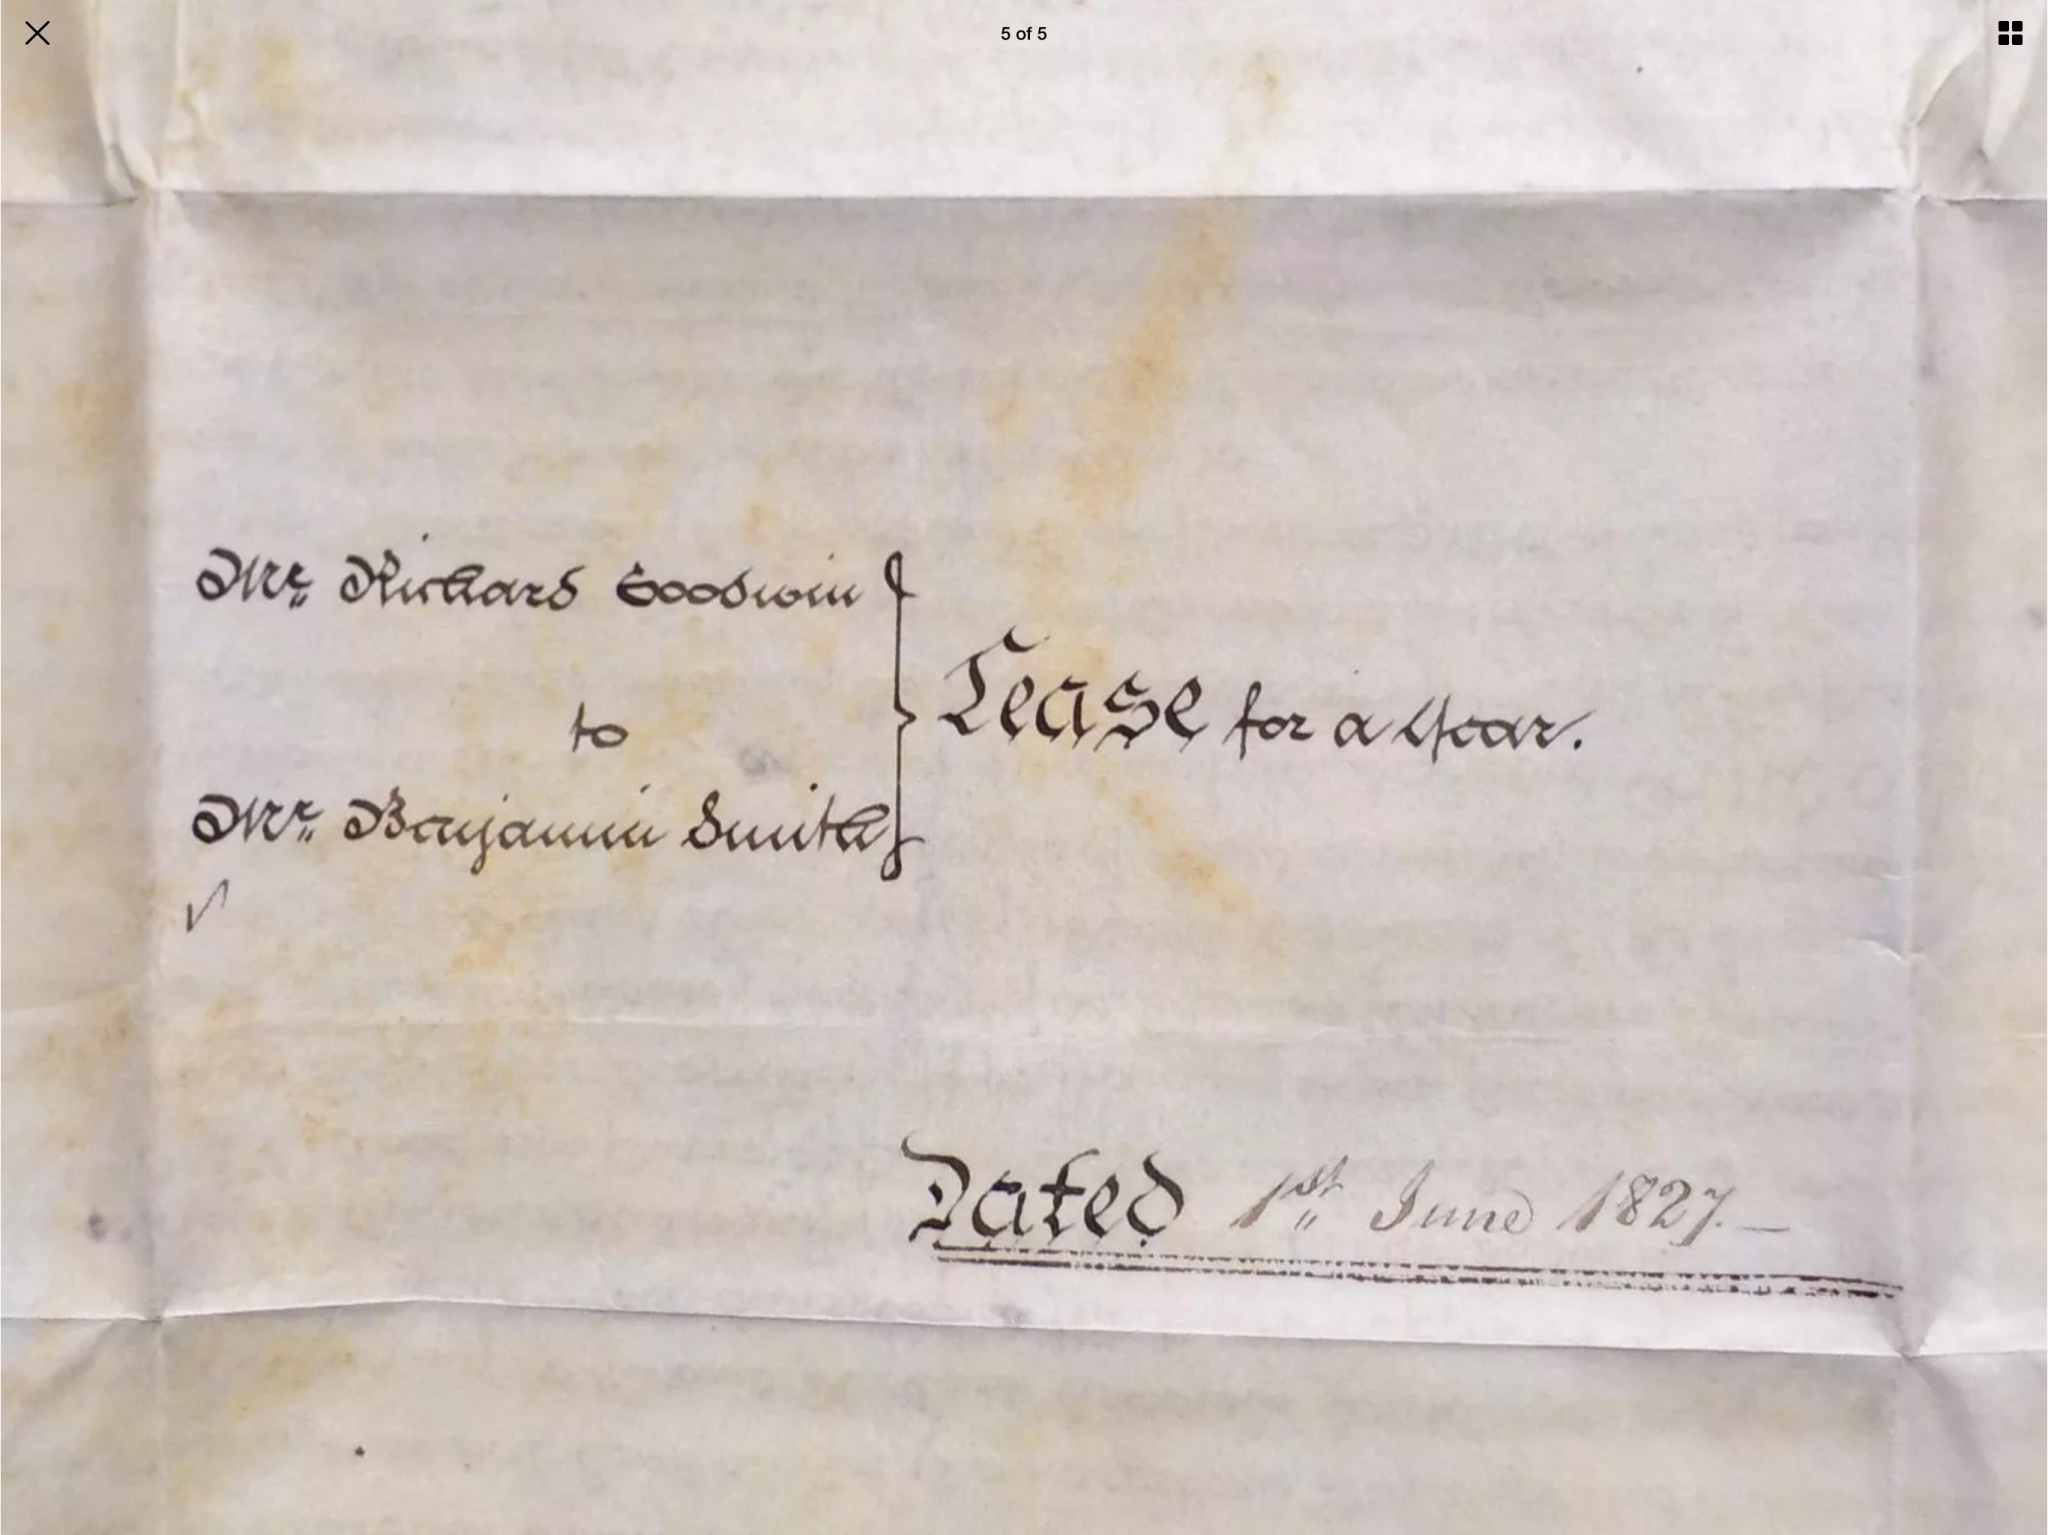 5 of 5
Mr. Richard Goodwin
to
Mr. Benjamin Smith
Lease for a Year.
Dated 1st June 1827.